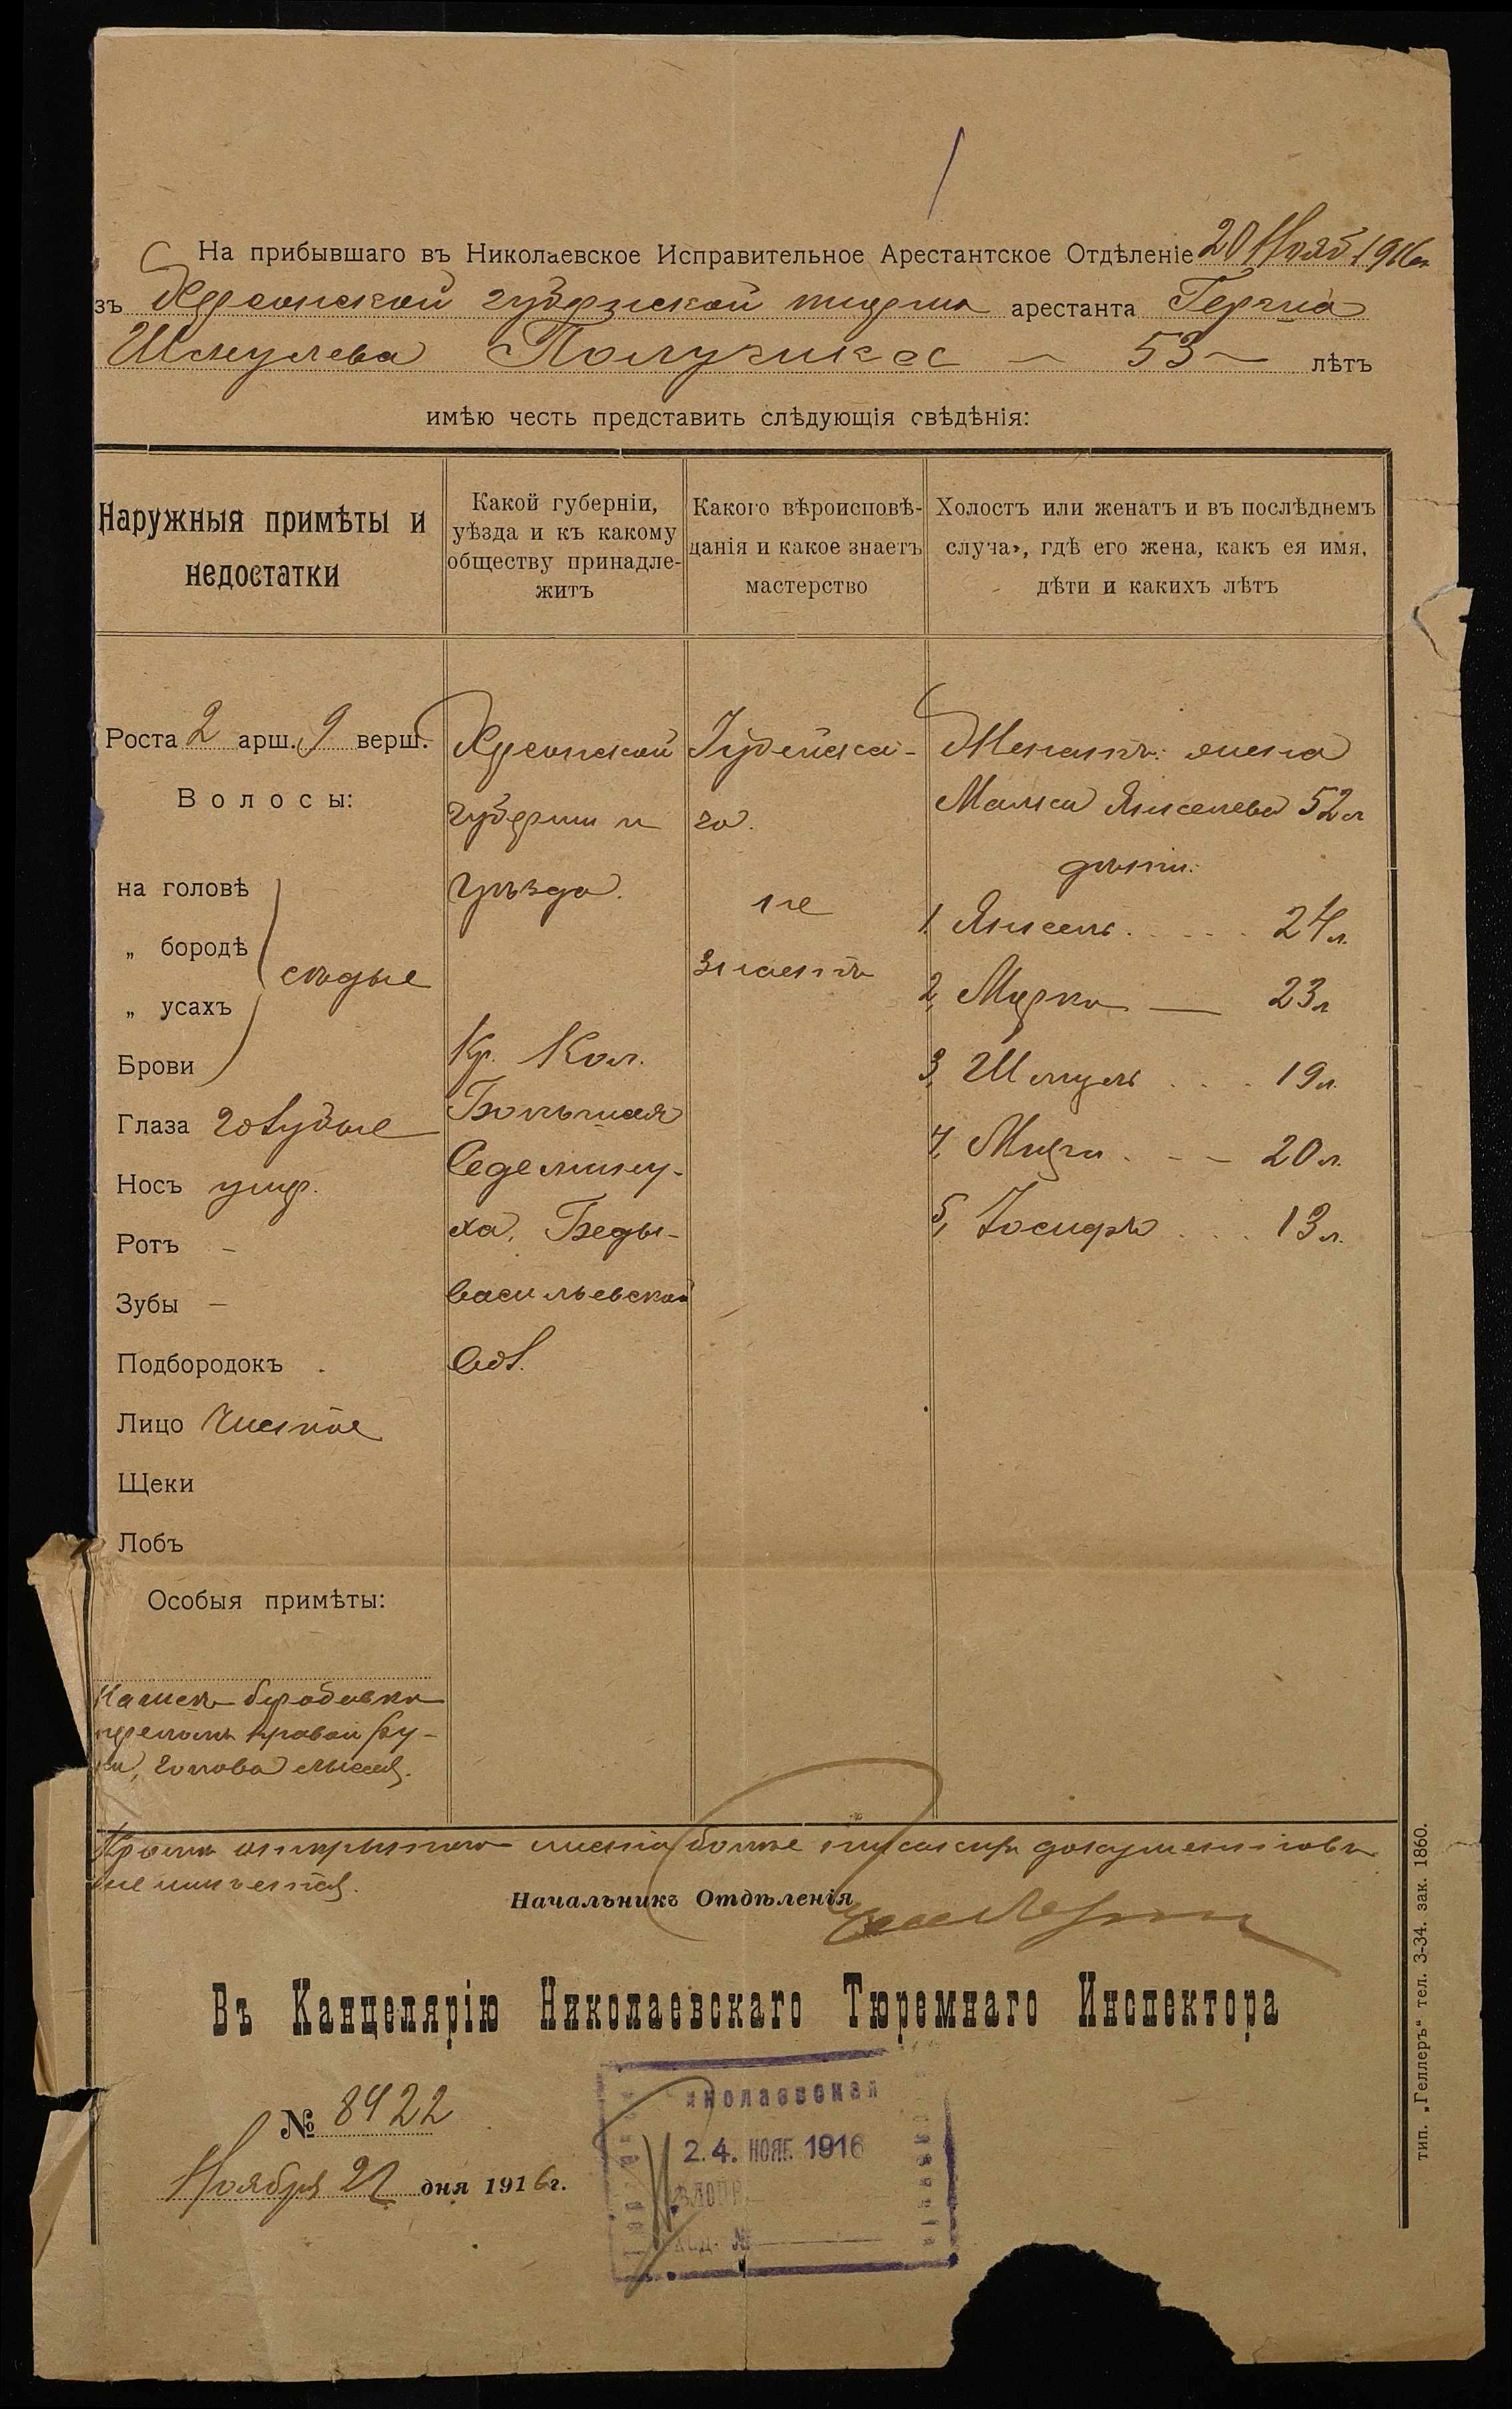 На прибывшаго въ Николаевское Исправительное Арестантское Отдѣленіе 20 Нояб. 1916г
зъ Херсонской губернской тюрьмы арестанта Герша
Шмулева Получикес — 53 — лѣтъ
имѣю честь представить слѣдующія свѣдѣнія:
Наружныя примѣты и
недостатки
Какой губерніи,
уѣзда и къ какому
обществу принадле-
житъ
Какого вѣроисповѣ-
данія и какое знаетъ
мастерство
Холостъ или женатъ и въ послѣднемъ
случаѣ, гдѣ его жена, какъ ея имя,
дѣти и какихъ лѣтъ
Роста 2 арш. 9 верш.
Волосы:
на головѣ
„ бородѣ
сѣдые
„ усахъ
Брови
Глаза голубые
Носъ умѣр.
Ротъ -
Зубы —
Подбородокъ .
Лицо чистое
Щеки
Лобъ
Особыя примѣты:
бородавка
переломъ правой ру-
ки, голова лысая.
Херсонской
губерніи и
уѣзда.
Кр. Кол.
Большая
Седемину-
ха,
васильевской
вол.
Іудейска-
го.
не
знаетъ
Женатъ: жена
Малка Янкелева 52 л
дѣти:
1 Янкель . . . . . 24 л.
2, Мирка — 23 л
3, Шмуль . . . 19 л.
4, . - — 20 л.
5, Іосифъ . . . 13 л.
Кромѣ открытого листа болѣе никакихъ документовъ
не имѣется.
Начальникъ Отдѣленія
Въ Канцелярію Николаевскаго Тюремнаго Инспектора
№ 8422
Ноября 22 дня 1916 г.
иколаевская
24. НОЯБ. 1916
№
тип. „Геллеръ“ тел. 3-34. зак. 1860.